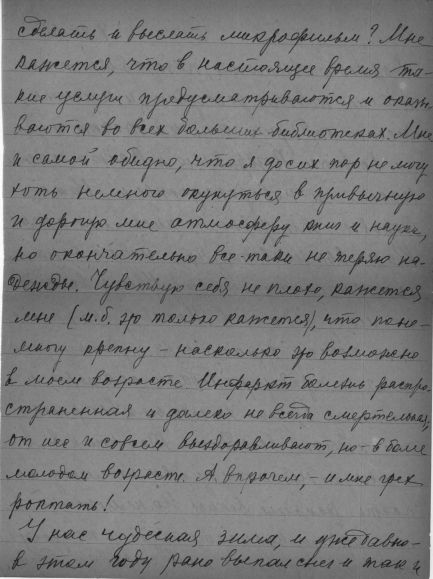 сделать и выслать микрофильм? Мне
кажется, что в настоящее время та-
кие услуги предусматриваются и оказы-
ваются во всех больших библиотеках. Мне
и самой обидно, что я до сих пор не могу
хоть немного окунуться в привычную
и дорогую мне атмосферу книг и науки,
но окончательно все-таки не теряю на-
дежды. Чувствую себя не плохо, кажется
мне (м.б. это только кажется), что поне-
многу крепну – насколько это возможно
в моем возрасте. Инфаркт болезнь распро-
страненная и далеко не всегда смертельная,
от нее и совсем выздоравливают, но – в более
молодом возрасте. А впрочем, – и мне грех
роптать!
У нас чудесная зима, и уже давно –
в этом году рано выпал снег и так и